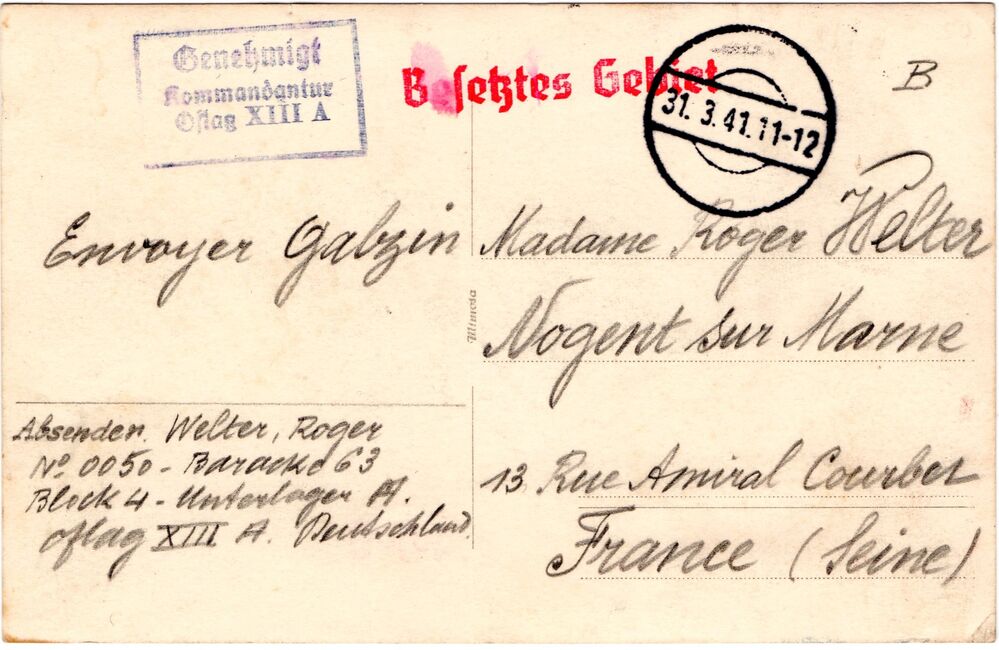 Genehmigt
Kommandantur
Oflag XIII A
Besetztes Gebiet
31. 3. 41. 11-12
B
Envoyer Galzin
Madame Roger Welter
Nogent sur Marne
Mimosa
Absender. Welter, Roger
Nº 0050 - Baracke 63
Block 4 - Unterlager A.
Oflag XIII A. Deutschland.
13 Rue Amiral Courbet
France (Seine)